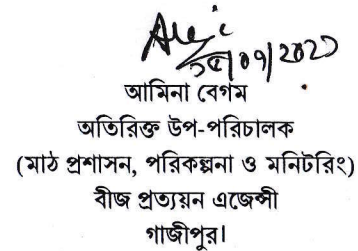 আমিনা বেগম
অতিরিক্ত উপ-পরিচালক
(মাঠ প্রশাসন, পরিকল্পনা ও মনিটরিং)
বীজ প্রত্যয়ন এজেন্সী
গাজীপুর।